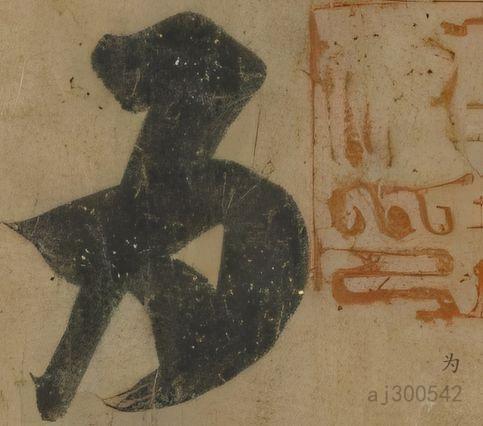 为
为
aj300542